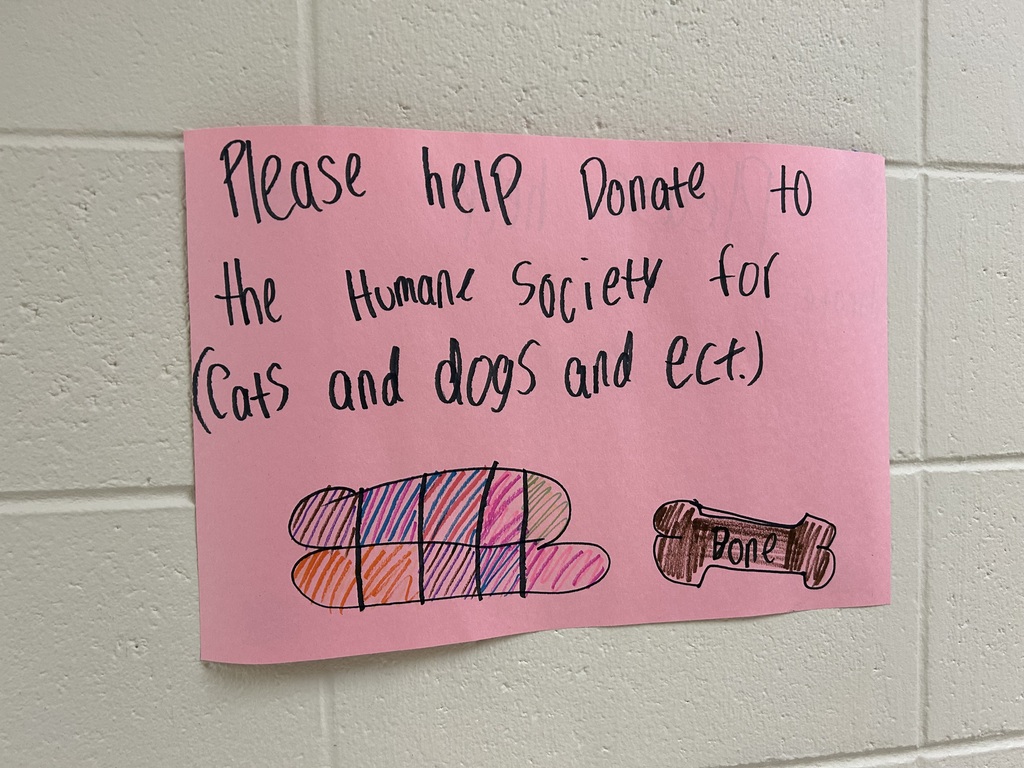 Please help Donate to
the Humane Society for
(Cats and dogs and ect.)
Bone